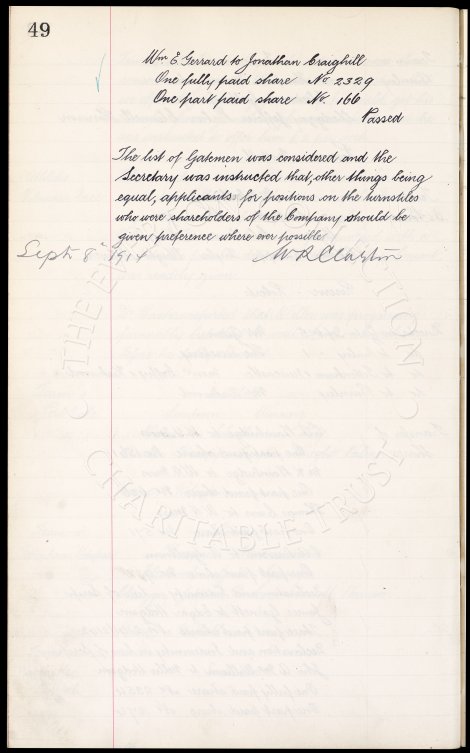 49
Wm E. Gerrard to Jonathan Craighill
One fully paid share No. 2329
One part paid share No. 166
Passed
The list of Gatemen was considered and the
Secretary was instructed that, other things being
equal, applicants for positions on the turnstiles
who were shareholders of the Company should be
given preference where ever possible
Sept 8th 1914 W R Clayton
THE EVERTON COLLECTION
CHARITABLE TRUST